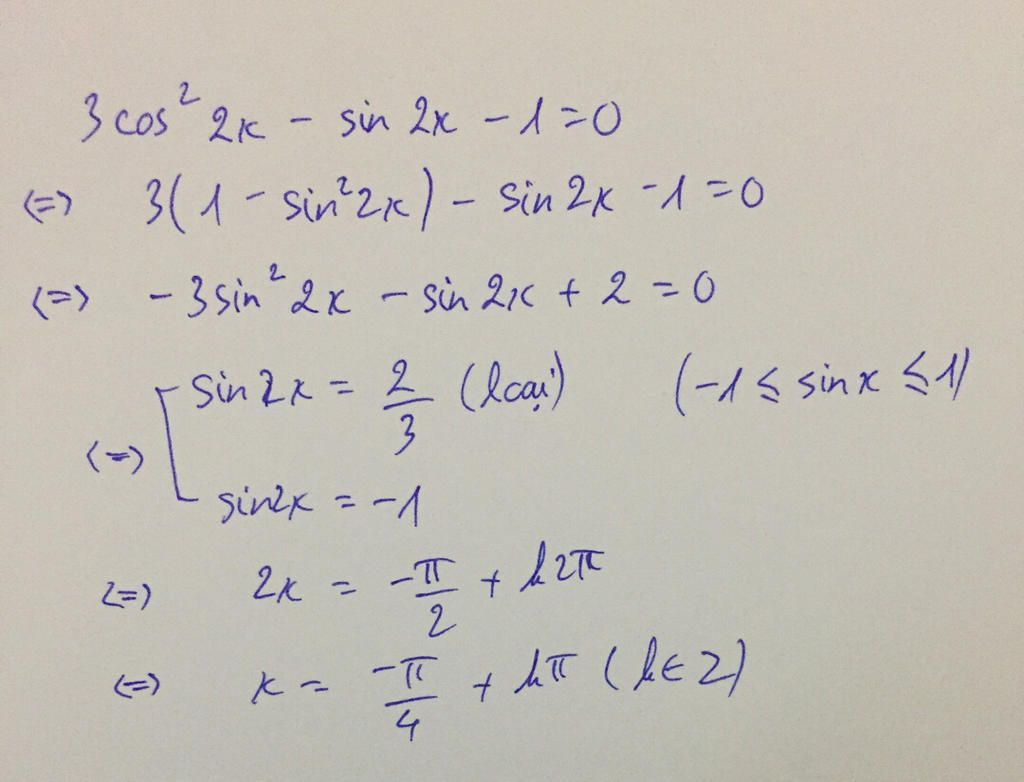 3 cos² 2x - sin 2x - 1 = 0
<=> 3(1 - sin² 2x) - sin 2x - 1 = 0
<=> -3 sin² 2x - sin 2x + 2 = 0
<=> [ sin 2x = 2/3 (loại) (-1 ≤ sin x ≤ 1)
sin2x = -1
<=> 2x = -π/2 + k2π
<=> x = -π/4 + kπ (k ∈ Z)